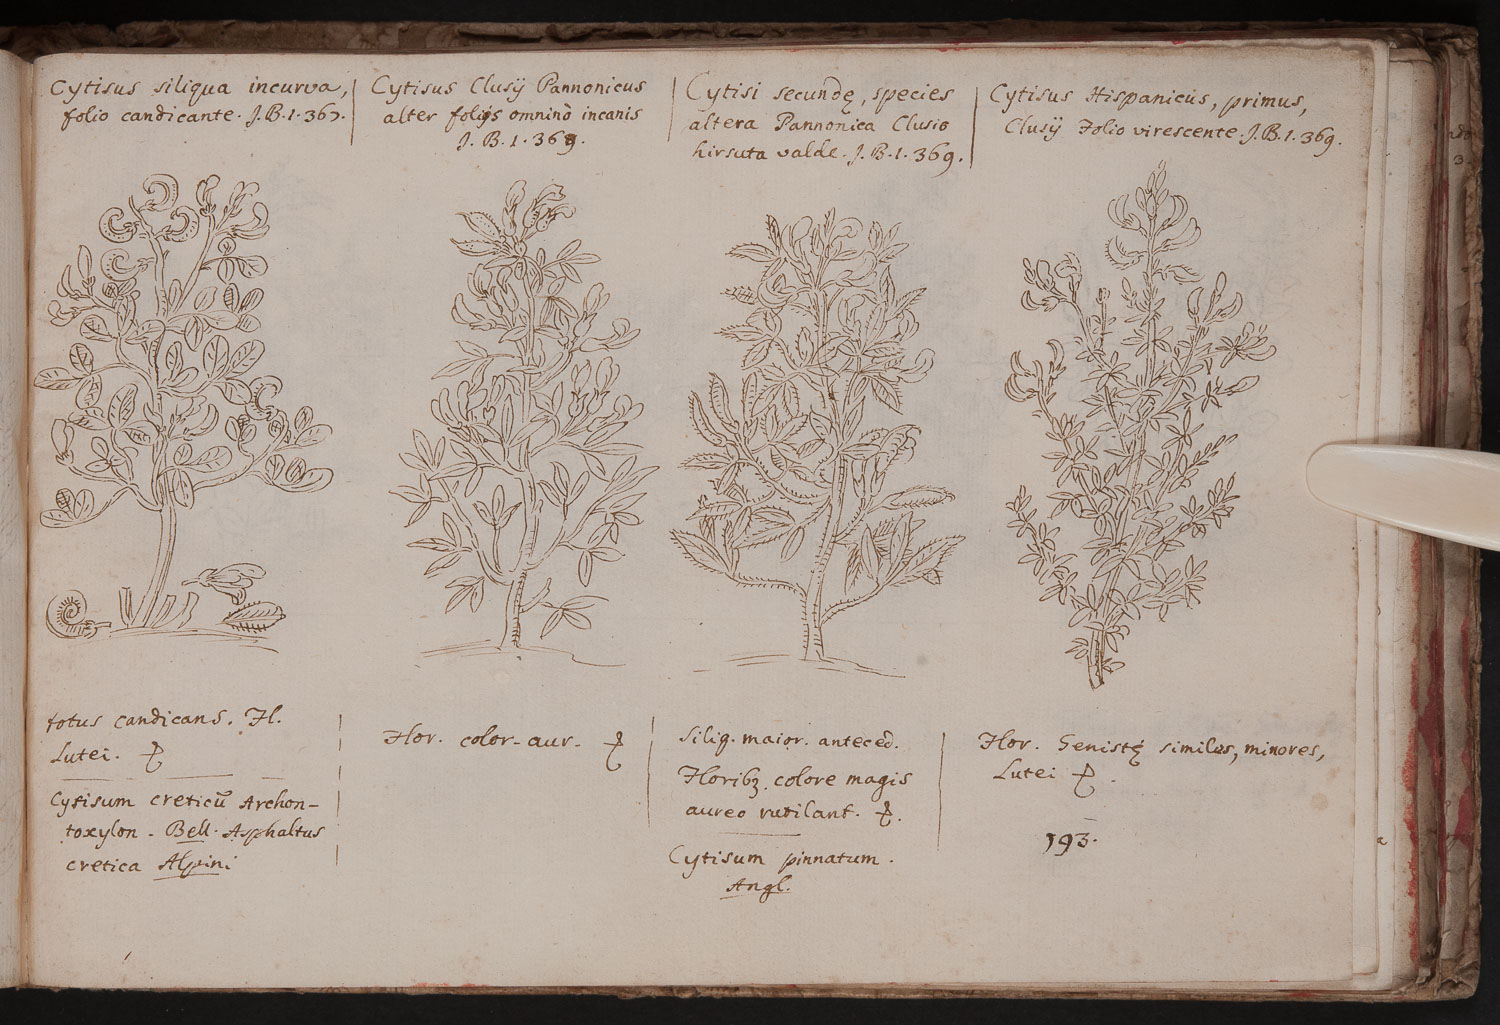 Cytisus siliqua incurva,
folio candicante. J.B.1.367.
Cytisus Clusij Pannonicus
alter folijs omninò incanis
J.B.1.369.
Cytisi secundę, species
altera Pannonica Clusio
hirsuta valde. J.B.1.369.
Cytisus Hispanicus, primus,
Clusij Folio virescente. J.B.1.369.
totus candicans. Fl.
Lutei.
Cytisum creticū Archon-
toxylon. Bell. Asphaltus
cretica Alpini
Flor. color. aur.
Siliq. maior. anteced.
Floribꝫ. colore magis
aureo rutilant.
Cytisum pinnatum.
Angl.
Flor. Genistę similes, minores,
Lutei
193.